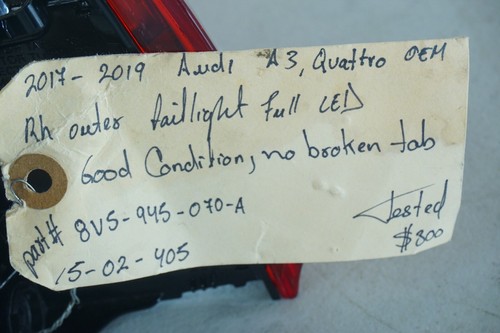 2017-2019 Audi A3, Quattro OEM
Rh outer taillight Full LED
Good Condition, no broken tab
part# 8V5-945-070-A
Tested
$800
15-02-405